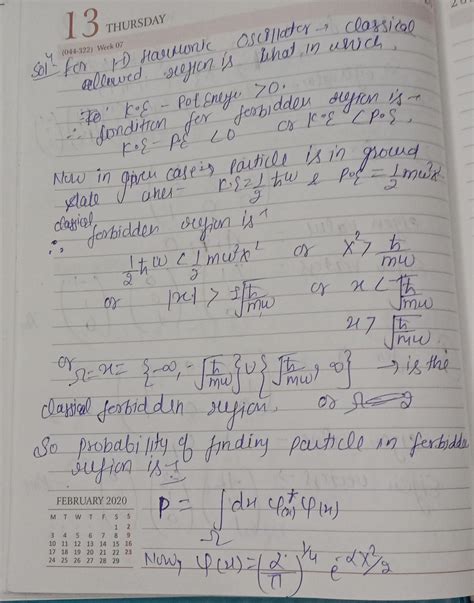 13 THURSDAY
(044-322) Week 07
Solⁿ for 1-D Harmonic Oscillator → classical
allowed region is what in which,
K.E - Pot Energy > 0.
∴ Condition for forbidden region is -
K.E - P.E < 0 or K.E < P.E,
Now in given case is particle is in ground
state K.E = 1/2 ħω & P.E = 1/2 mω²x²
classical
∴ forbidden region is
1/2 ħω < 1/2 mω²x² or x² > ħ/mω
or |x| > ±√(ħ/mω) or x < -√(ħ/mω)
x > √(ħ/mω)
or Ω = x = {-∞, -√(ħ/mω)} ∪ {√(ħ/mω), ∞} → is the
classical forbidden region,
So probability of finding particle in forbidde
region is -
P = ∫_Ω dx φ†(x) φ(x)
Now, φ(x) = (α/π)^1/4 e^-αx²/2
FEBRUARY 2020
M T W T F S S
1 2
3 4 5 6 7 8 9
10 11 12 13 14 15 16
17 18 19 20 21 22 23
24 25 26 27 28 29